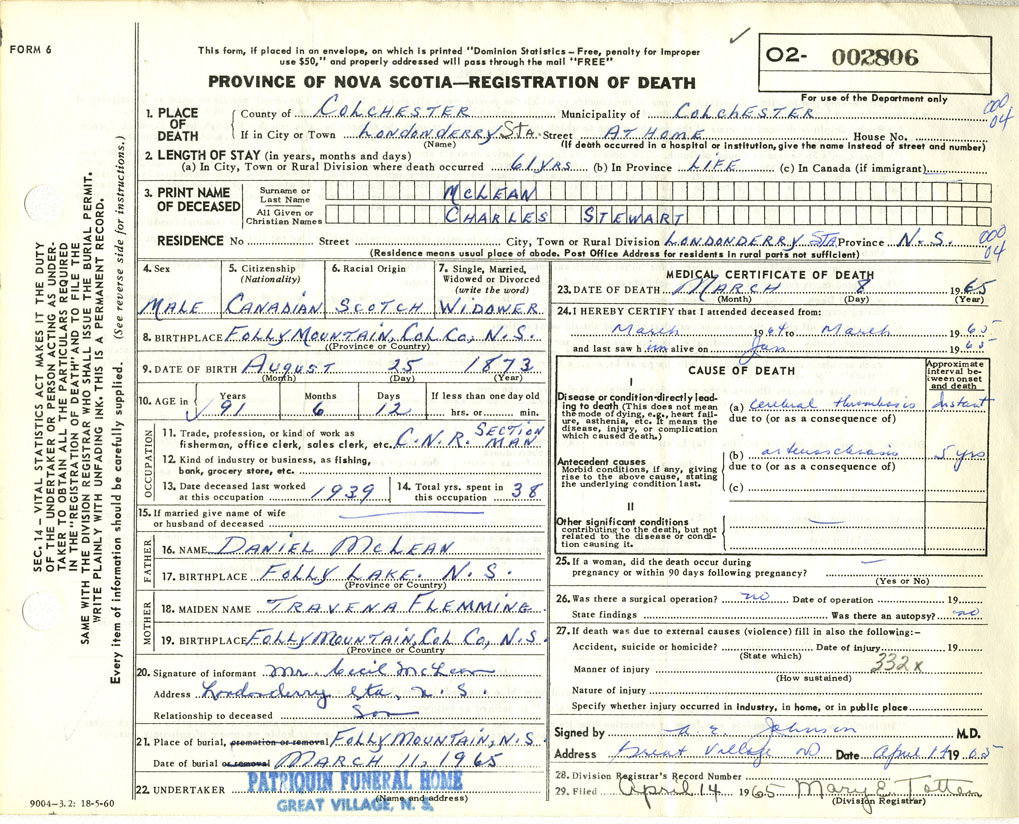 FORM 6
This form, if placed in an envelope, on which is printed "Dominion Statistics – Free, penalty for improper
use $50," and properly addressed will pass through the mail "FREE"
PROVINCE OF NOVA SCOTIA—REGISTRATION OF DEATH
O2- 002806
For use of the Department only
1. PLACE OF DEATH
County of COLCHESTER Municipality of COLCHESTER
000 04
If in City or Town LONDONDERRY STA. Street AT HOME House No.
(Name) (If death occurred in a hospital or institution, give the name instead of street and number)
2. LENGTH OF STAY (in years, months and days)
(a) In City, Town or Rural Division where death occurred 61 YRS (b) In Province LIFE (c) In Canada (if immigrant)
3. PRINT NAME OF DECEASED
Surname or Last Name MCLEAN
All Given or Christian Names CHARLES STEWART
RESIDENCE No Street City, Town or Rural Division LONDONDERRY STA Province N.S. 000 04
(Residence means usual place of abode. Post Office Address for residents in rural parts not sufficient)
4. Sex MALE
5. Citizenship (Nationality) CANADIAN
6. Racial Origin SCOTCH
7. Single, Married, Widowed or Divorced (write the word) WIDOWER
8. BIRTHPLACE FOLLY MOUNTAIN, COL CO, N.S.
(Province or Country)
9. DATE OF BIRTH AUGUST 25 1873
(Month) (Day) (Year)
10. AGE in Years 91 Months 6 Days 12 If less than one day old hrs. or min.
OCCUPATION
11. Trade, profession, or kind of work as
fisherman, office clerk, sales clerk, etc. C.N.R. SECTION MAN
12. Kind of industry or business, as fishing,
bank, grocery store, etc.
13. Date deceased last worked at this occupation 1939
14. Total yrs. spent in this occupation 38
15. If married give name of wife
or husband of deceased
FATHER
16. NAME DANIEL MCLEAN
17. BIRTHPLACE FOLLY LAKE. N.S.
(Province or Country)
MOTHER
18. MAIDEN NAME TRAVENA FLEMMING
19. BIRTHPLACE FOLLY MOUNTAIN, COL CO, N.S.
(Province or Country
20. Signature of informant Mr. Cecil McLean
Address Londonderry Sta, N.S.
Relationship to deceased Son
21. Place of burial, cremation or removal FOLLY MOUNTAIN, N.S.
Date of burial or removal MARCH 11, 1965
22. UNDERTAKER PATRIQUIN FUNERAL HOME
GREAT VILLAGE, N. S.
(Name and address)
9004–3.2: 18-5-60
MEDICAL CERTIFICATE OF DEATH
23. DATE OF DEATH MARCH 8 1965
(Month) (Day) (Year)
24. I HEREBY CERTIFY that I attended deceased from:
March 1964 to March 1965
and last saw him alive on Jan 1965
CAUSE OF DEATH
Approximate interval between onset and death
I
Disease or condition directly leading to death (This does not mean the mode of dying, e.g., heart failure, asthenia, etc. It means the disease, injury, or complication which caused death.)
(a) cerebral thrombosis instant
due to (or as a consequence of)
Antecedent causes
Morbid conditions, if any, giving rise to the above cause, stating the underlying condition last.
(b) 5 yrs
due to (or as a consequence of)
(c)
II
Other significant conditions
contributing to the death, but not related to the disease or condition causing it.
25. If a woman, did the death occur during
pregnancy or within 90 days following pregnancy?
(Yes or No)
26. Was there a surgical operation? no Date of operation 19
State findings Was there an autopsy? no
27. If death was due to external causes (violence) fill in also the following:–
Accident, suicide or homicide? Date of injury 19
(State which)
332x
Manner of injury
(How sustained)
Nature of injury
Specify whether injury occurred in industry, in home, or in public place
Signed by A. E. Johnson M.D.
Address Great Village Date April 14 1965
28. Division Registrar's Record Number
29. Filed April 14 1965 Mary E. Totten
(Division Registrar)
SEC. 14 – VITAL STATISTICS ACT MAKES IT THE DUTY
OF THE UNDERTAKER OR PERSON ACTING AS UNDER-
TAKER TO OBTAIN ALL THE PARTICULARS REQUIRED
IN THE "REGISTRATION OF DEATH" AND TO FILE THE
SAME WITH THE DIVISION REGISTRAR WHO SHALL ISSUE THE BURIAL PERMIT.
WRITE PLAINLY WITH UNFADING INK. THIS IS A PERMANENT RECORD.
Every item of information should be carefully supplied. (See reverse side for instructions.)